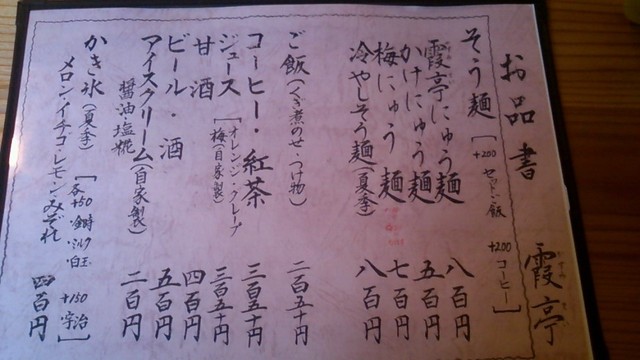 お品書
霞亭
そう麺 [+200 セットご飯 +200 コーヒー]
霞亭にゅう麺 八百円
かけにゅう麺 五百円
梅にゅう麺 七百円
冷やしそう麺(夏季) 八百円
ご飯(くき煮のせ・つけ物) 二百五十円
コーヒー・紅茶 三百五十円
ジュース [オレンジ・グレープ 梅(自家製) 三百五十円
甘酒 四百円
ビール・酒 五百円
アイスクリーム(自家製) 二百円
醤油・塩糀
かき氷(夏季) [各+50・金時・ミルク・白玉 +150 宇治]
メロン・イチゴ・レモン・みぞれ 四百円